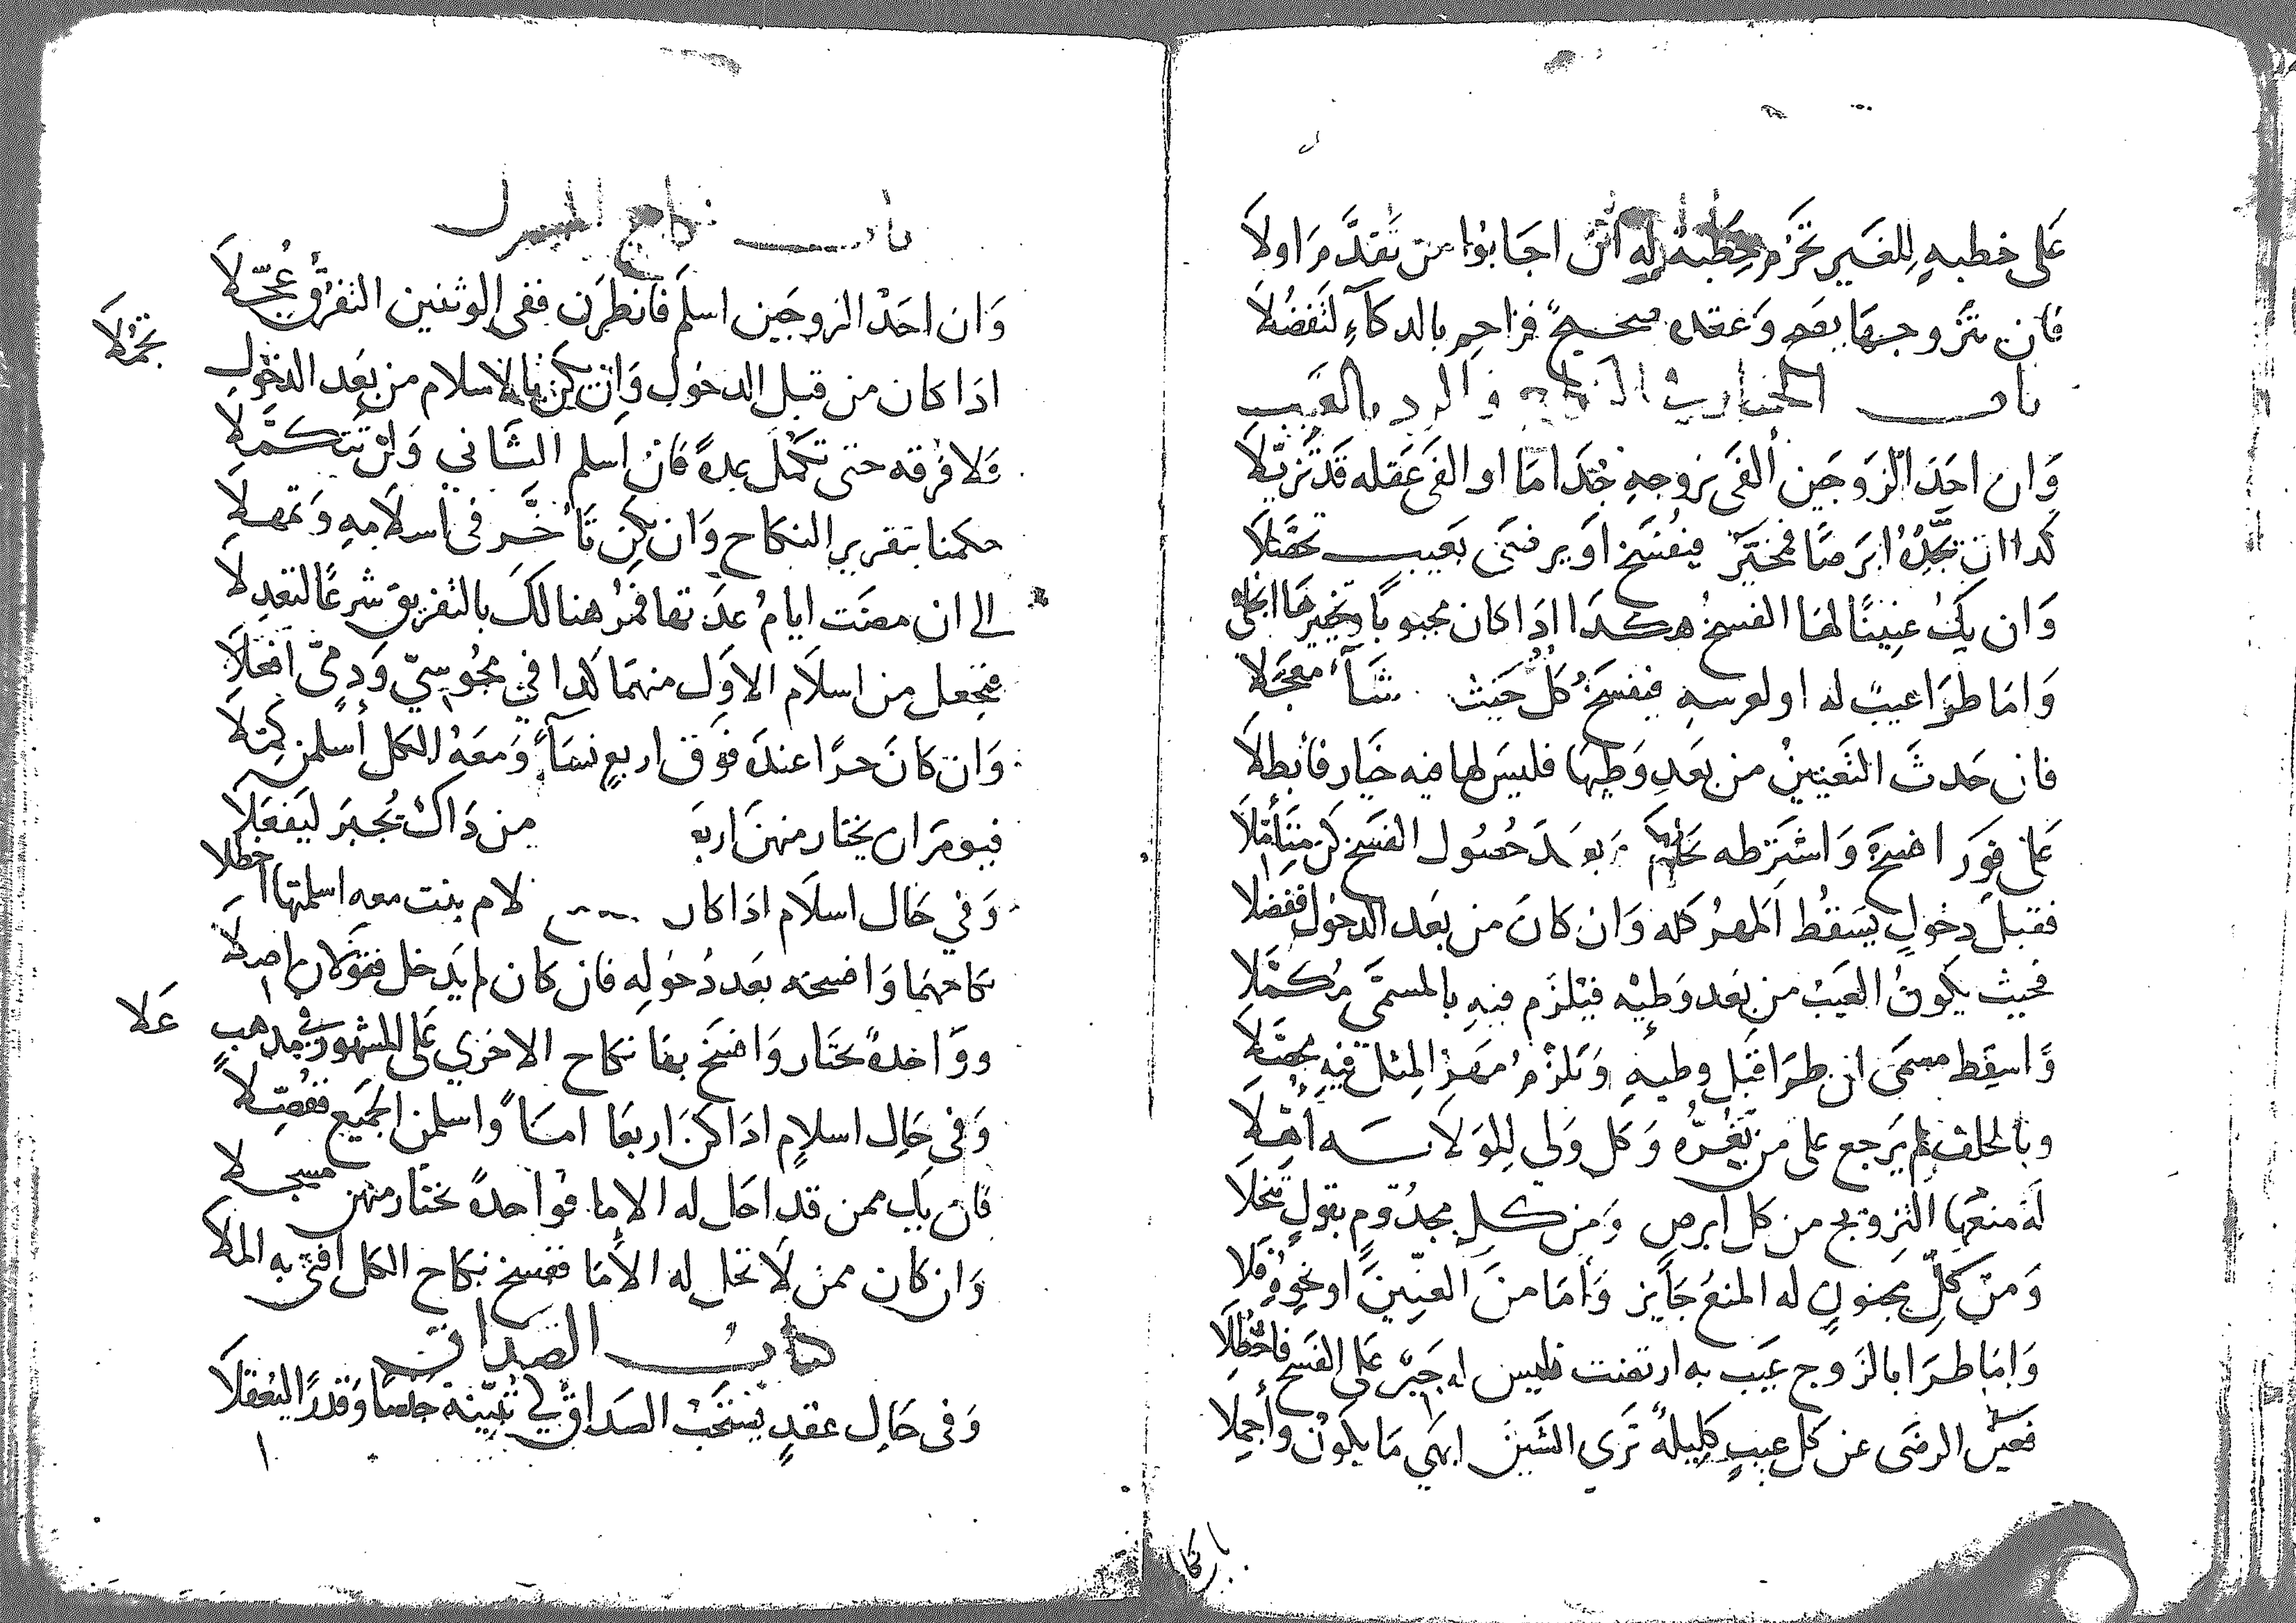 على خطبه للغير تحرم خطبة له ان اجابوا من تقدم اولا
فان تتزوجها بعد وعقده صحيح فزاحم بالدكاء لتفضلا
باب الخيار في النكاح والرد بالعيب
وان احد الزوجين ألفى بزوجه جداما او الفى عقله قد تزيلا
كدا ان تجده ابرصا فمخير فيفسخ او يرضى بعيب تحصلا
وان يك عنينا لها الفسخ هكدا ادا كان مجبوبا وتخييرها انجلى
واما طرا عيب له او لعرسه فيفسخ كل حيث شآء معجلا
فان حدث التعنين من بعد وطيها فليس لها فيه خيار فأبطلا
على فور افسخه واشترطه بحاكم وبعد حصول الفسخ كن متأملا
فقبل دخول يسقط المهر كله وان كان من بعد الدخول ففصلا
فحيث يكون العيب من بعد وطيه فيلزم فيه بالمسمى مكملا
واسقط مسمى ان طرا قبل وطيه وتلزم مهر المثل فيه محصلا
وبالخلف لم يرجع على من يغره وكل ولي للولاية أهلا
له منعها التزويج من كل ابرص ومن كل مجدوم بقول تنخلا
ومن كل مجنون له المنع جايز وأما من العنين او نحوه فلا
واما طرا بالزوج عيب به ارتضت فليس له جبر على الفسخ فاحظلا
فعين الرضى عن كل عيب كليلة ترى الشين ابهى ما يكون وأجملا
باب نكا
باب نكاح المشرك
وان احد الزوجين اسلم فانظرن ففي الوثنين التفرق عجلا
ادا كان من قبل الدخول وان يكن بالاسلام من بعد الدخول
تجملا
ولا فرقه حتى تكمل عدة فان اسلم الثاني ولن تتكملا
حكمنا بتقرير النكاح وان يكن تأخر في اسلامه وتمهلا
الى ان مضت ايام عدتها فمر هنالك بالتفريق شرعا لتعدلا
فتجعل من اسلام الاول منهما كدا في مجوسي ودمي افعلا
وان كان حرا عنده فوق اربع نسآء ومعه الكل أسلمن كملا
فيومر ان يختار منهن اربع من داك يجبر ليفعلا
وفي حال اسلام ادا كان لام بنت معه اسلمتها احظلا
نكاحهما وافسخه بعد دخوله فان كان لم يدخل فقولان اصلا
وواحدة تختار وافسخ بها نكاح الاخرى على المشهور في مدهب
علا
وفي حال اسلام ادا كن اربعا اماء واسلمن الجميع ففصلا
فان يك ممن قد احل له الاما فواحدة تختار منهن مسجلا
وان كان ممن لا تحل له الأما ففسخ نكاح الكل افتى به الملا
كتاب الصداق
وفي حال عقد يستحب الصداق في تبينه جنسا وقدرا ليعقلا